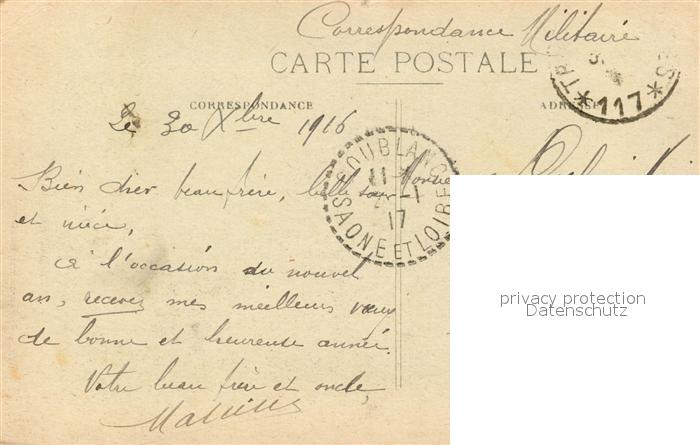 Correspondance Militaire
CARTE POSTALE
CORRESPONDANCE
ADRESSE
TR
*117*
Le 30 Xbre 1916
COUBLANC
11
-1
17
SAONE ET LOIRE
Bien cher beau frère, belle sœur
et nièce,
à l'occasion du nouvel
an, recevez mes meilleurs vœux
de bonne et heureuse année.
Votre beau frère et oncle,
privacy protection
Datenschutz